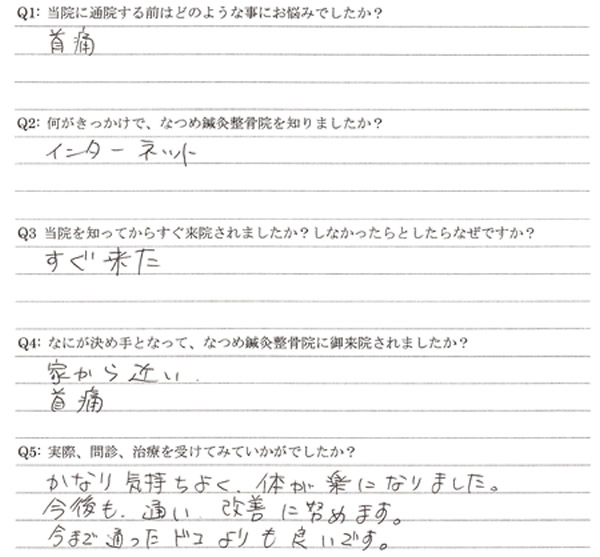 Q1: 当院に通院する前はどのような事にお悩みでしたか？
首痛
Q2: 何がきっかけで、なつめ鍼灸整骨院を知りましたか？
インターネット
Q3 当院を知ってからすぐ来院されましたか？しなかったらとしたらなぜですか？
すぐ来た
Q4: なにが決め手となって、なつめ鍼灸整骨院に御来院されましたか？
家から近い.
首痛
Q5: 実際、問診、治療を受けてみていかがでしたか？
かなり気持ちよく、体が楽になりました。
今後も、通い、改善に努めます。
今まで通ったドコよりも良いです。